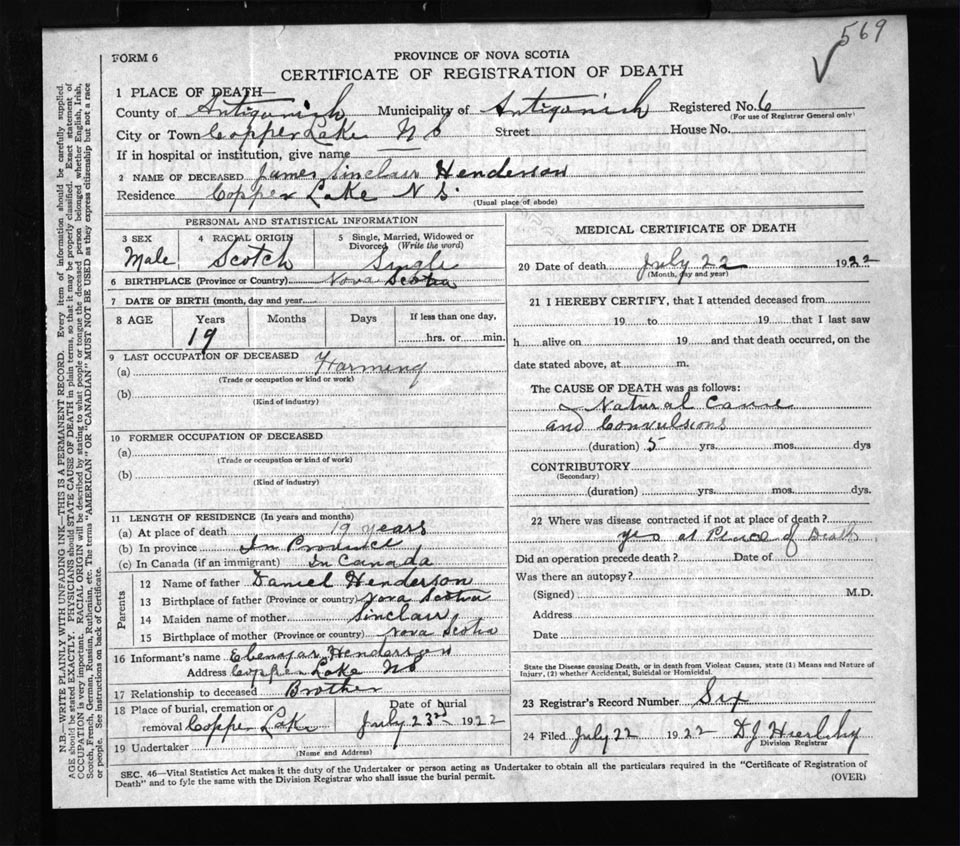 569
FORM 6
PROVINCE OF NOVA SCOTIA
CERTIFICATE OF REGISTRATION OF DEATH
1 PLACE OF DEATH—
County of Antigonish Municipality of Antigonish Registered No. 6
(For use of Registrar General only)
City or Town Copper Lake N S Street House No.
If in hospital or institution, give name
2 NAME OF DECEASED James Sinclair Henderson
Residence Copper Lake N S.
(Usual place of abode)
PERSONAL AND STATISTICAL INFORMATION
3 SEX 4 RACIAL ORIGIN 5 Single, Married, Widowed or
Divorced (Write the word)
Male Scotch Single
6 BIRTHPLACE (Province or Country) Nova Scotia
7 DATE OF BIRTH (month, day and year)
8 AGE Years Months Days If less than one day,
19 hrs. or min.
9 LAST OCCUPATION OF DECEASED
(a) Farming
(Trade or occupation or kind or work)
(b)
(Kind of industry)
10 FORMER OCCUPATION OF DECEASED
(a)
(Trade or occupation or kind of work)
(b)
(Kind of industry)
11 LENGTH OF RESIDENCE (In years and months)
(a) At place of death 19 years
(b) In province In Province
(c) In Canada (if an immigrant) In Canada
Parents
12 Name of father Daniel Henderson
13 Birthplace of father (Province or country) Nova Scotia
14 Maiden name of mother Sinclair
15 Birthplace of mother (Province or country) Nova Scotia
16 Informant's name Henderson
Address Copper Lake NS
17 Relationship to deceased Brother
18 Place of burial, cremation or Date of burial
removal Copper Lake July 23rd 1922
19 Undertaker
(Name and Address)
MEDICAL CERTIFICATE OF DEATH
20 Date of death July 22 1922
(Month, day and year)
21 I HEREBY CERTIFY, that I attended deceased from
19 to 19 that I last saw
h alive on 19 and that death occurred, on the
date stated above, at m.
The CAUSE OF DEATH was as follows:
Natural Cause
and Convulsions
(duration) 5 yrs. mos. dys
CONTRIBUTORY
(Secondary)
(duration) yrs. mos. dys.
22 Where was disease contracted if not at place of death?
yes at Place of Death
Did an operation precede death? Date of
Was there an autopsy?
(Signed) M.D.
Address
Date
State the Disease causing Death, or in death from Violent Causes, state (1) Means and Nature of
Injury, (2) whether Accidental, Suicidal or Homicidal.
23 Registrar's Record Number Six
24 Filed July 22 1922 D J
Division Registrar
SEC. 46—Vital Statistics Act makes it the duty of the Undertaker or person acting as Undertaker to obtain all the particulars required in the "Certificate of Registration of
Death" and to fyle the same with the Division Registrar who shall issue the burial permit.
(OVER)
N.B.—WRITE PLAINLY WITH UNFADING INK—THIS IS A PERMANENT RECORD. Every item of information should be carefully supplied.
AGE should be stated EXACTLY. PHYSICIANS should STATE CAUSE OF DEATH in plain terms, so that it may be properly classified. Exact statement of
OCCUPATION is very important. RACIAL ORIGIN will be described by stating to what people or tongue the deceased person belonged whether English, Irish,
Scotch, French, German, Russian, Ruthenian, etc. The terms "AMERICAN" OR "CANADIAN" MUST NOT BE USED as they express citizenship but not a race
or people. See instructions on back of Certificate.